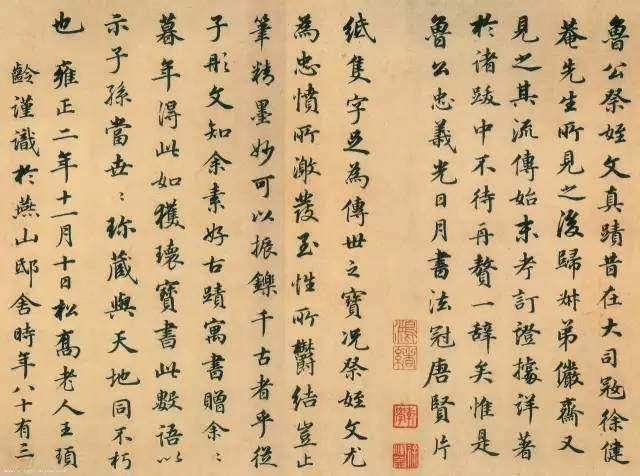 魯公祭姪文真蹟昔在大司寇徐健
菴先生所見之後歸弟儼齋又
見之其流傳始末考訂證據詳著
於諸跋中不待再贅一辭矣惟是
魯公忠義光日月書法冠唐賢片
紙隻字足為傳世之寶況祭姪文尤
為忠憤所激發至性所鬱結豈止
筆精墨妙可以振鑠千古者乎從
子彤文知余素好古蹟寓書贈余〻
暮年得此如獲瓌寶書此數語以
示子孫當世〻珍藏與天地同不朽
也 雍正二年十一月十日松喬老人王頊
齡謹識於燕山邸舍時年八十有三